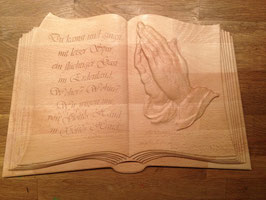 Du kamst und gingst
mit leiser Spur
ein flüchtiger Gast
im Erdenland.
Woher? Wohin?
Wir wissen nur
von Gottes Hand
in Gottes Hand.